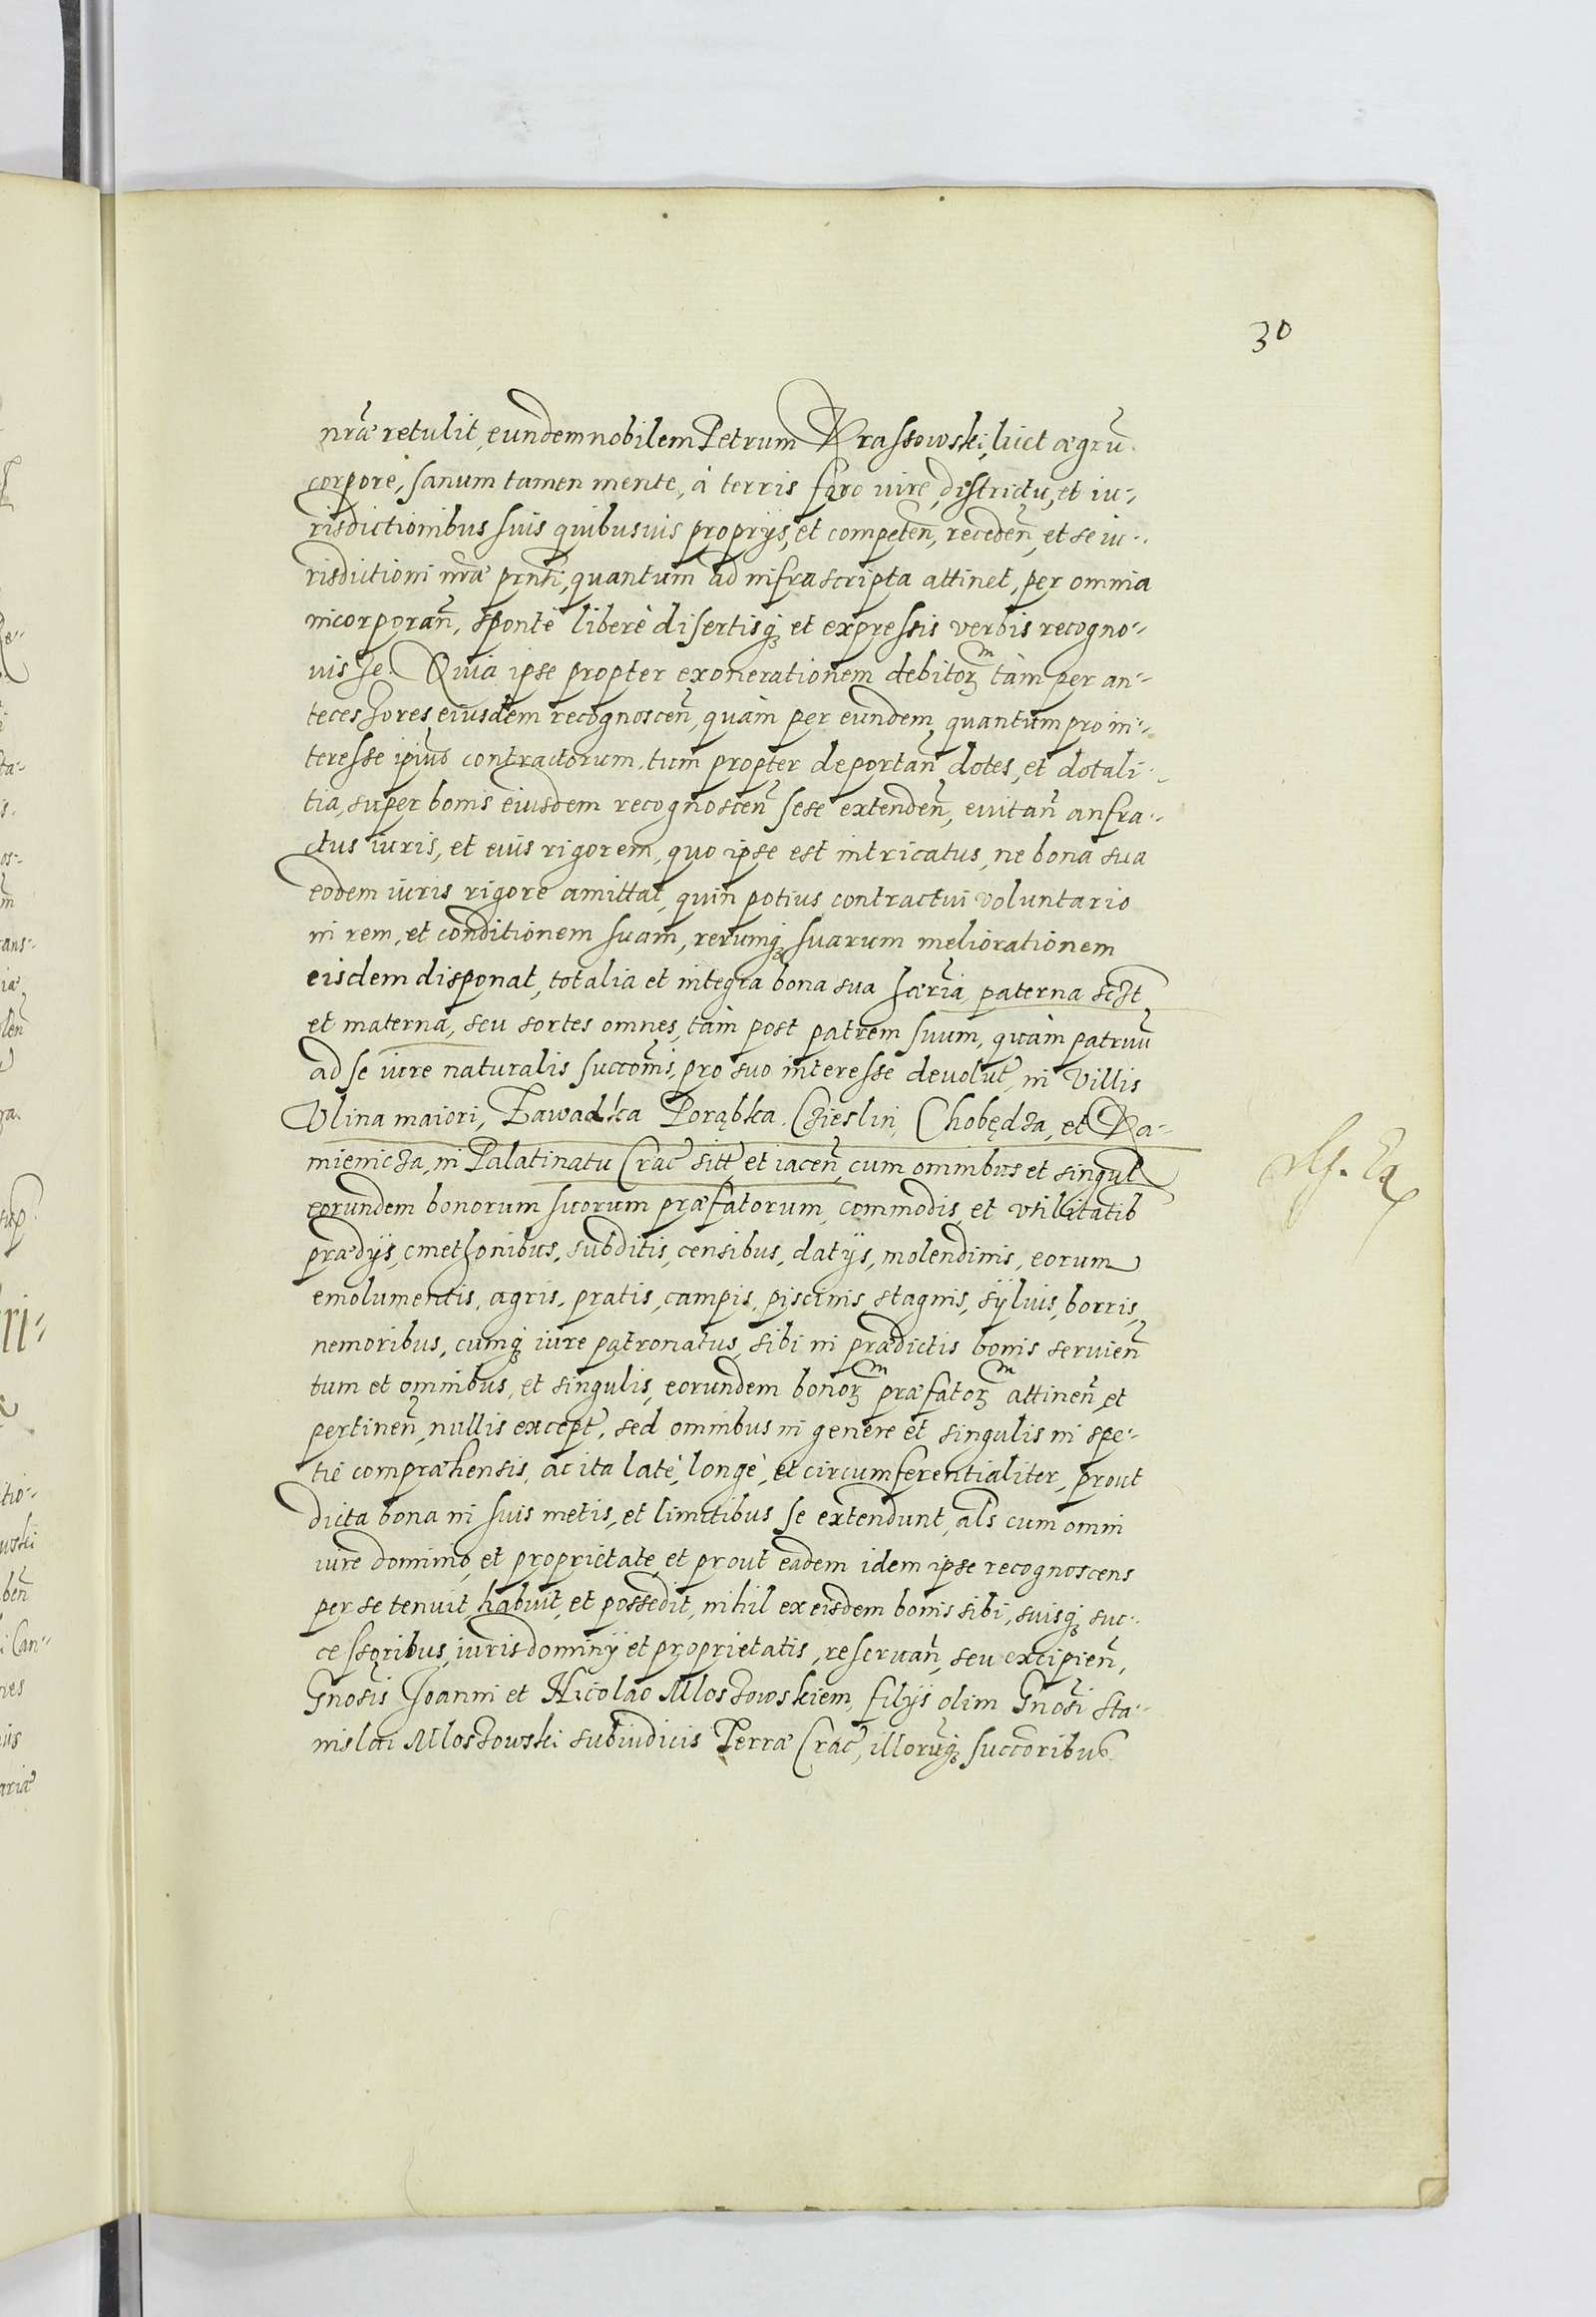 30
nrãe retulit, eundem nobilem Petrum Krassowski, licet aegrũ
corpore, sanum tamen mente, à terris foro iure, districtu, et iu-
risdictionibus suis quibusuis proprijs, et competeñ, recedeñ, et se iu-
risdictioni nrãe prñti, quantum ad infrascripta attinet, per omnia
incorporañ, spontè liberè disertisq; et expressis verbis recogno-
uisse. Quia ipse propter exonerationem debitorᵐ tàm per an-
tecessores eiusdem recognosceñ, quàm per eundem, quantum pro in-
teresse ipiũs contractorum, tum propter deportañ dotes, et dotali-
tia, super bonis eiusdem recognosceñ sese extendeñ, euitañ anfra-
ctus iuris, et eius rigorem, quo ipse est intricatus, ne bona sua
eodem iuris rigore amittat, quin potius contractui voluntario
in rem, et conditionem suam, rerumq; suarum meliorationem
eisdem disponat, totalia et integra bona sua haerĩa, paterna sczt
et materna, seu sortes omnes, tàm post patrem suum, quàm patruũ
ad se iure naturalis succoñis, pro suo interesse deuolut, in Villis
Vlina maiori, Zawadka Porąbka, Czieslin, Chobędza, et Ka-
mienicza, in Palatinatu Crac̃ sitt et iaceñ, cum omnibus et singul
eorundem bonorum suorum praefatorum, commodis, et vtilitatib
praedijs, cmethonibus, subditis, censibus, datijs, molendinis, eorum
emolumentis, agris, pratis, campis, piscinis, stagnis, syluis, borris,
nemoribus, cumq; iure patronatus, sibi in praedictis bonis seruieñ
tum et omnibus, et singulis, eorundem bonorᵐ praefatorᵐ attineñ, et
pertineñ, nullis except, sed omnibus in genere et singulis in spe-
tie compraehensis, ac ita latè, longè, et circumferentialiter, prout
dicta bona in suis metis, et limitibus se extendunt, als cum omni
iure dominio, et proprietate, et prout eadem idem ipse recognoscens
per se tenuit, habuit, et possedit, nihil ex eisdem bonis sibi, suisq; suc-
cessoribus, iuris dominij et proprietatis, reseruañ, seu excipieñ,
Gnosĩs Joanni et Nicolao Mloszowskiem, filijs olim Gnosĩ Sta-
nislai Mloszowski subiudicis Terrae Crac̃, illorũq; succoribus.